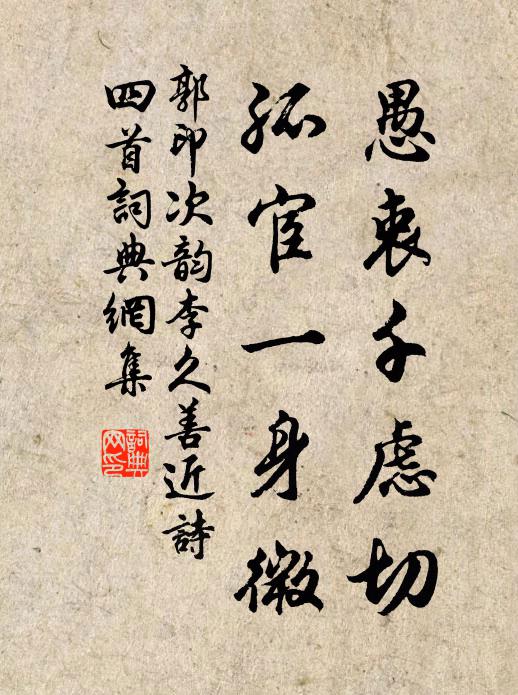 愚衷千慮切
孤宦一身微
郭印次韵李久善近詩
四首詞典網集
詞典网印